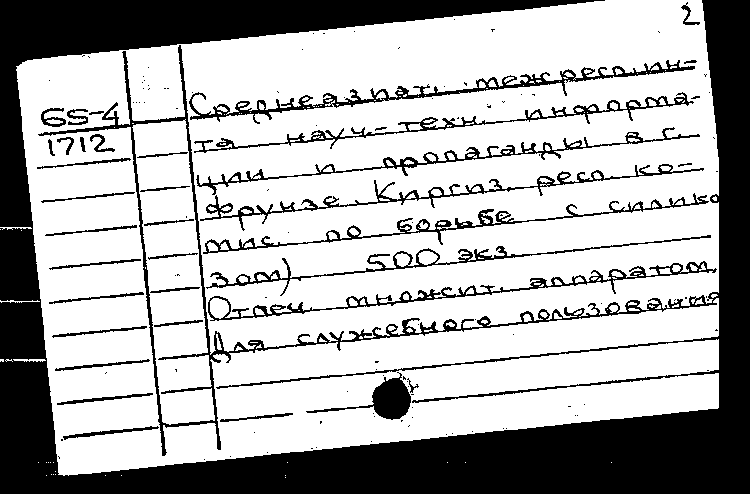 2
Среднеазиат. межресп. ин-
65-4
та науч.-техн. информа-
1712
ции и пропаганды в г.
Фрунзе. Киргиз. респ. ко-
мис. по борьбе с силико
зом). 500 экз.
Отпеч. множит. аппаратом.
Для служебного пользования